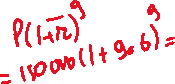 P(1+r)⁹
= 15000(1+9.6)⁹ =